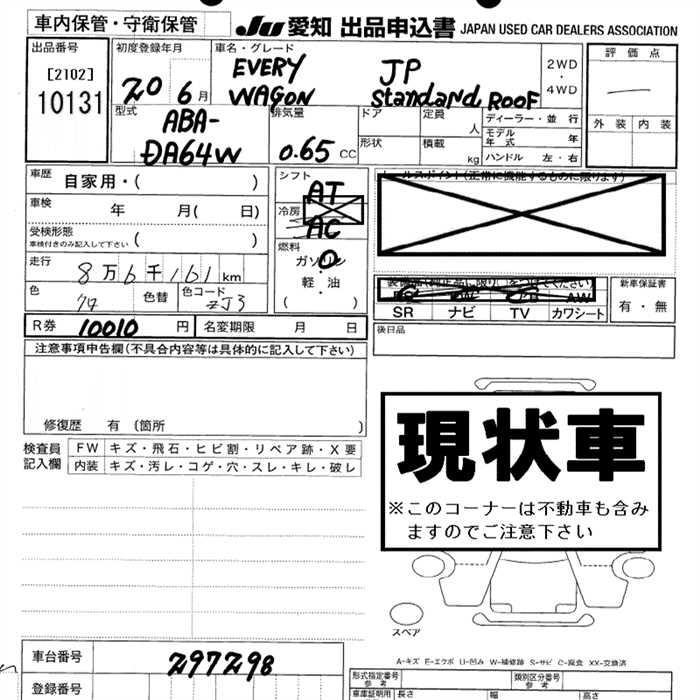 車内保管・守衛保管
JU 愛知 出品申込書 JAPAN USED CAR DEALERS ASSOCIATION
出品番号
[2102]
10131
初度登録年月
20 6月
車名・グレード
EVERY JP
WAGON Standard ROOF
2WD
・
4WD
評価点
外装 内装
型式
ABA-
DA64W
排気量
0.65 CC
ドア
定員
人
形状
積載
kg
ディーラー・並行
モデル
年式
年
ハンドル 左・右
車歴
自家用・( )
車検
年 月( 日)
受検形態
車検付きのみ記入して下さい ( )
走行
8万6千161km
色
色替
色コード
ZJ3
シフト
AT
冷房
AC
燃料
ガソリン
軽・油
( )
(正常に機能するものに限ります)
SR ナビ TV カワシート
AW
新車保証書
有・無
R券 10010 円
名変期限 月 日
後日品
注意事項申告欄(不具合内容等は具体的に記入して下さい)
修復歴 有 (箇所 )
検査員
記入欄
FW キズ・飛石・ヒビ割・リペア跡・X要
内装 キズ・汚レ・コゲ・穴・スレ・キレ・破レ
現状車
※このコーナーは不動車も含み
ますのでご注意下さい
スペア
A-キズ E-エクボ U-凹み W-補修跡 S-サビ C-腐食 XX-交換済
車台番号
297298
登録番号
形式指定番号
参考
類別区分番号
参考
車庫証明用
長さ
幅
高さ